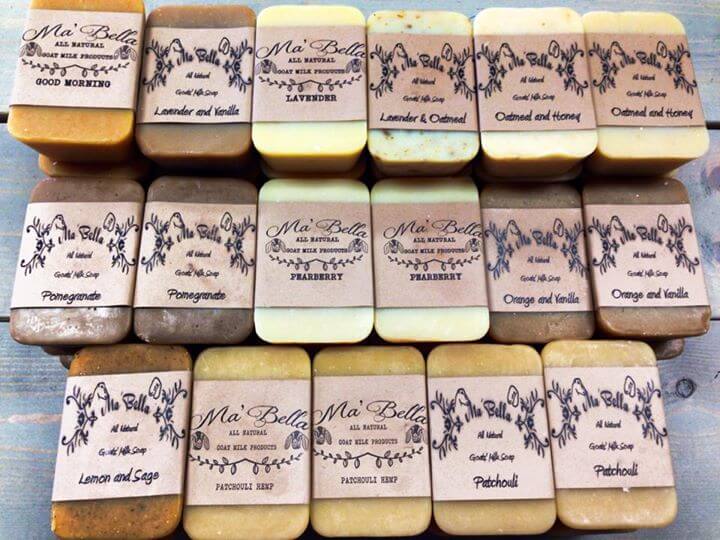 Ma' Bella
ALL NATURAL
GOAT MILK PRODUCTS
GOOD MORNING
Ma Bella
All Natural
Goats' Milk Soap
Lavender and Vanilla
Ma' Bella
ALL NATURAL
GOAT MILK PRODUCTS
LAVENDER
Ma Bella
All Natural
Goats' Milk Soap
Lavender & Oatmeal
Ma Bella
All Natural
Goats' Milk Soap
Oatmeal and Honey
Ma Bella
All Natural
Goats' Milk Soap
Oatmeal and Honey
Ma Bella
All Natural
Goats' Milk Soap
Pomegranate
Ma Bella
All Natural
Goats' Milk Soap
Pomegranate
Ma' Bella
ALL NATURAL
GOAT MILK PRODUCTS
PEARBERRY
Ma' Bella
ALL NATURAL
GOAT MILK PRODUCTS
PEARBERRY
Ma Bella
All Natural
Goats' Milk Soap
Orange and Vanilla
Ma Bella
All Natural
Goats' Milk Soap
Orange and Vanilla
Ma Bella
All Natural
Goats' Milk Soap
Lemon and Sage
Ma' Bella
ALL NATURAL
GOAT MILK PRODUCTS
PATCHOULI HEMP
Ma' Bella
ALL NATURAL
GOAT MILK PRODUCTS
PATCHOULI HEMP
Ma Bella
All Natural
Goats' Milk Soap
Patchouli
Ma Bella
All Natural
Goats' Milk Soap
Patchouli